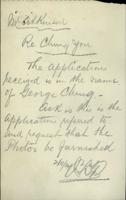 Re Ching You
The application
received is in the name
of George Ching.
Ask is this the
application refered to
and request that the
Photos be furnished